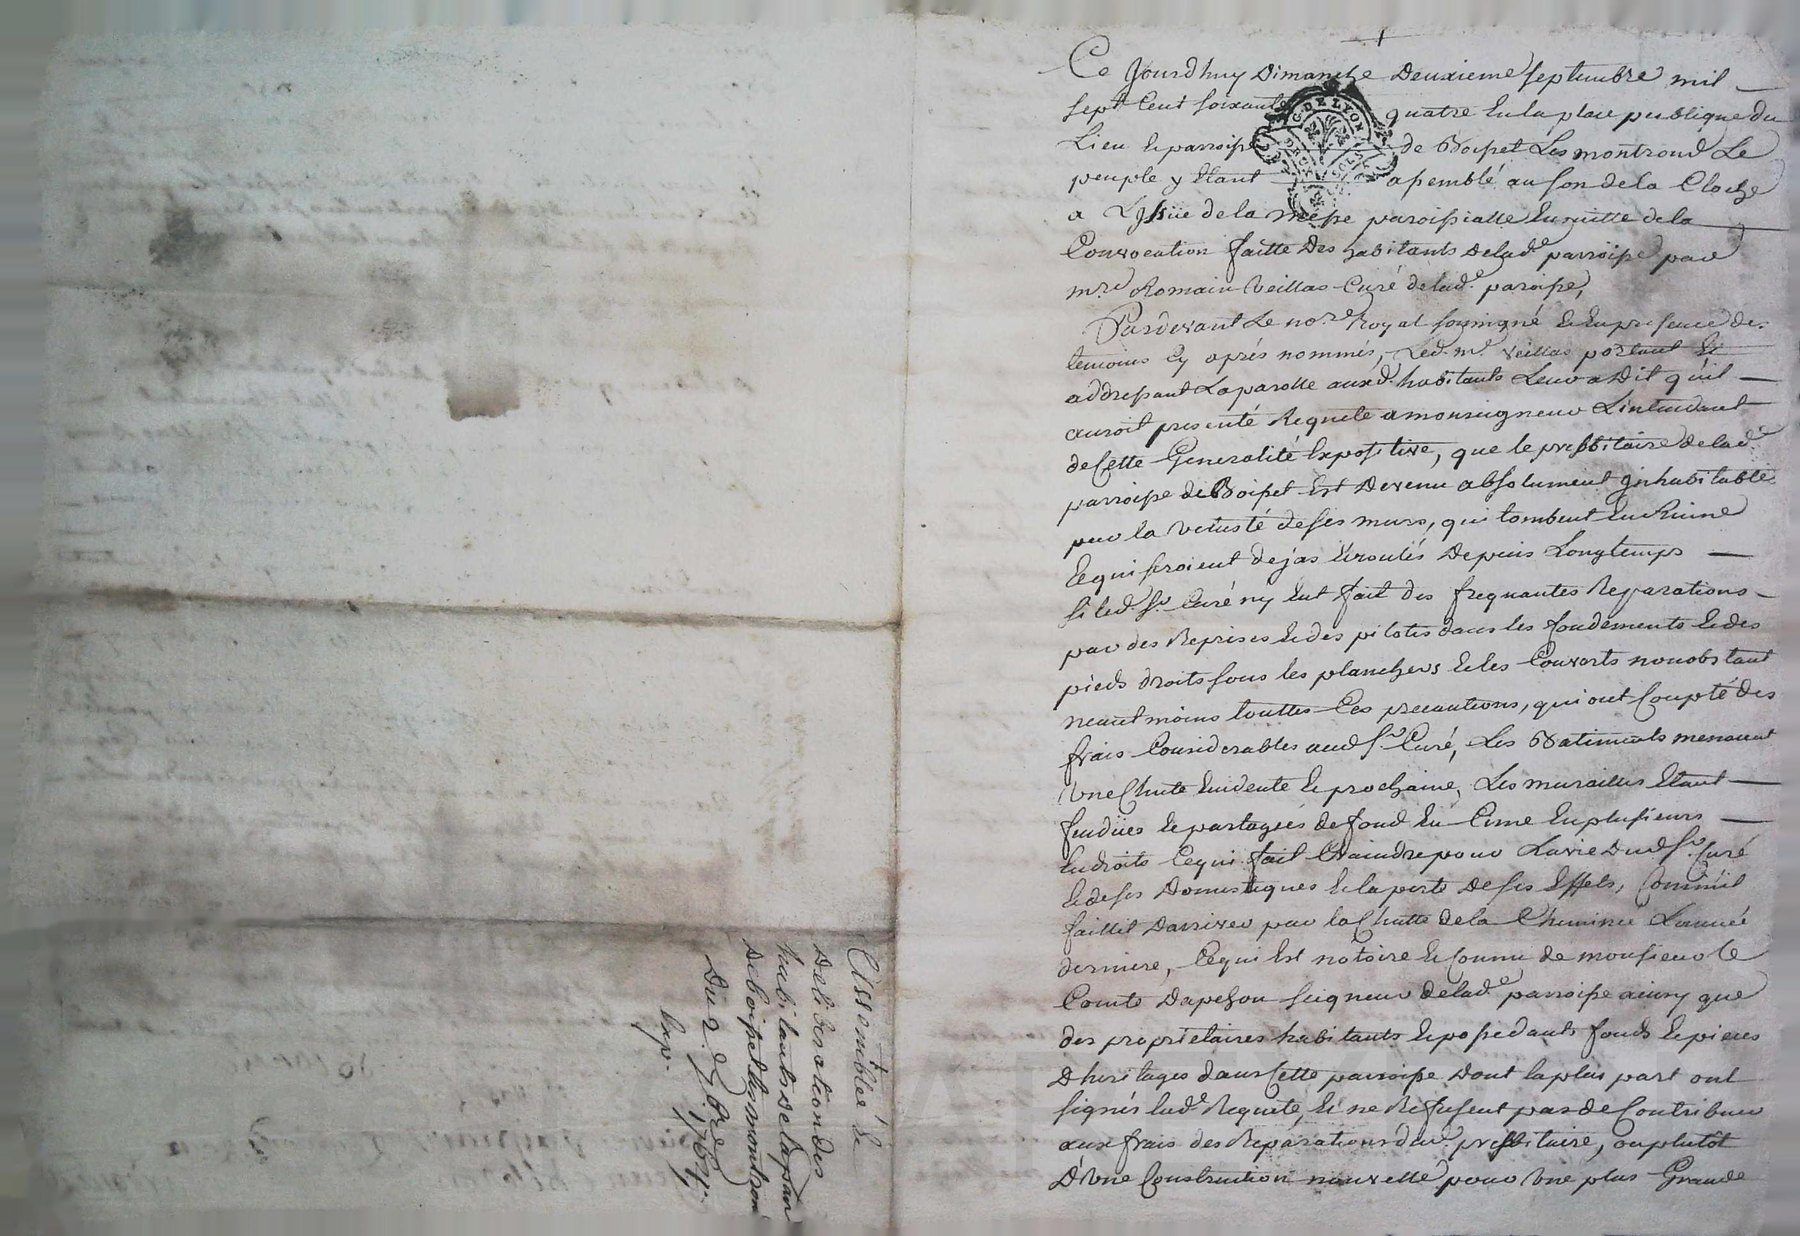 Ce Jourdhuy Dimanche deuxieme septembre mil
sept cent soixante quatre en la place publique du
Lieu et parroisse de Boisset Les montrond Le
peuple y étant assemblé au son de la Cloche
a L'Issüe de la messe paroissialle ensuitte de la
Convocation faitte des habitants de lad.e parroisse par
m.re Romain Veillas Curé de lad.e paroisse,
Pardevant Le no.re Royal soussigné et en presence des
temoins cy aprés nommés, Led. m.e Veillas portant et
addressant La parolle auxd. habitants Leur a dit qu'il
auroit presenté Requete a monseigneur L'intendant
de Cette Generalité Expositive, que le presbitaire de lad.e
parroisse de Boisset Est devenu absolument inhabitable
par la vetusté de ses murs, qui tombent en Ruine
et qui seroient dejas écroulés depuis Longtemps
si led. S.r Curé ny eut fait des frequantes Reparations
par des Reprises et des pilotis dans les fondements et des
pieds droits sous les planchers et les Couverts nonobstant
neantmoins touttes Ces precautions, qui ont Coupté des
frais Considerables aud. S.r Curé, Les Batiments menacent
Une Chute Evidente et prochaine, Les murailles étant
fendües et partagées de fond en Cime en plusieurs
Endroits Ce qui fait Craindre pour La vie dud. S.r Curé
et de ses Domestiques et la perte de ses Effets, Comm'il
faillit d'arriver par la Chutte de la Cheminée L'année
derniere, Ce qui Est notoire et Connu de monsieur le
Comte Dapchon seigneur de lad.e parroisse ainsy que
des proprietaires habitants et possedants fonds et pieces
d'heritages dans Cette parroisse dont la plus part ont
signés lad.e Requete, et ne Refusent pas de Contribuer
aux frais des Reparations dud. presbitaire, ou plutôt
D'Une Construction nouvelle pour Une plus Grande
Assemblée et
Deliberation des
habitants de la parr
de boisset les montrond
Du 2 7bre 1764.
Exp.